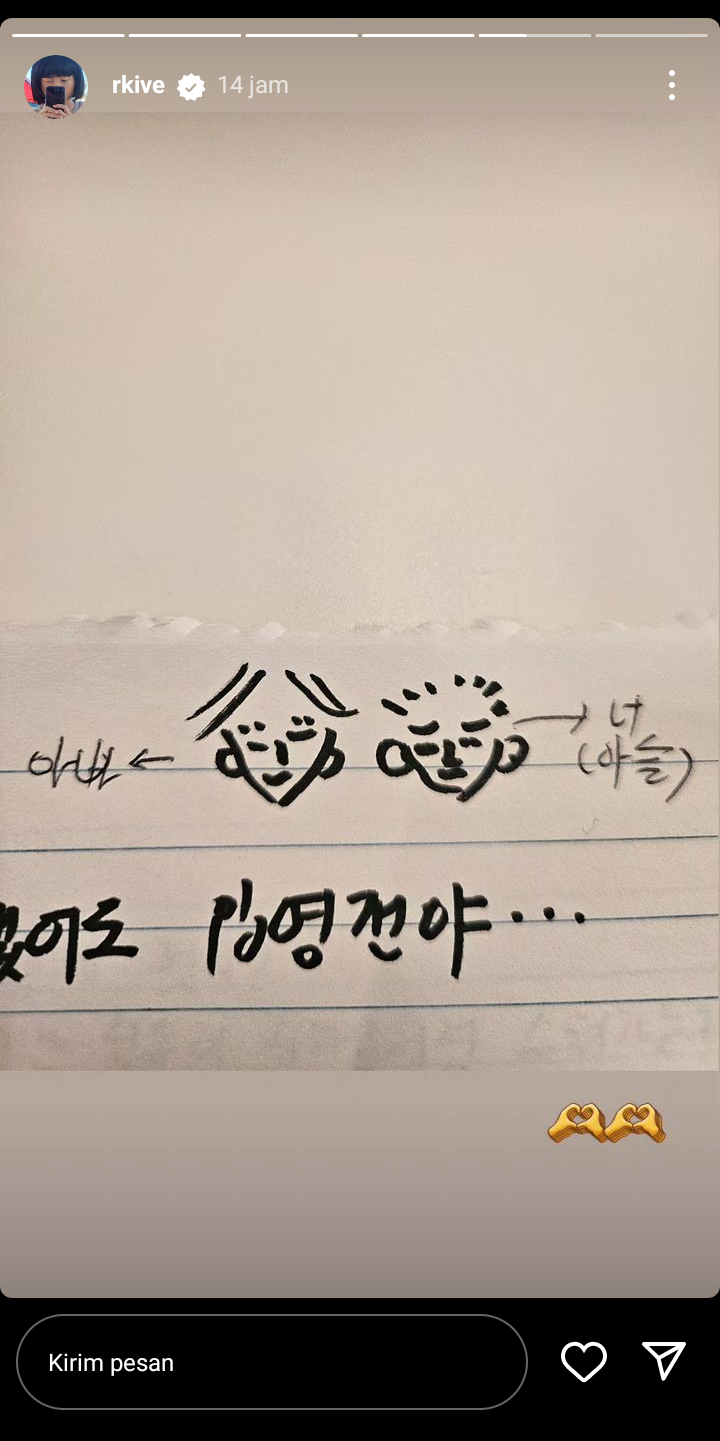 rkive 14 jam
아빠 ← → 너
(아들)
없어도 입영전야...
Kirim pesan